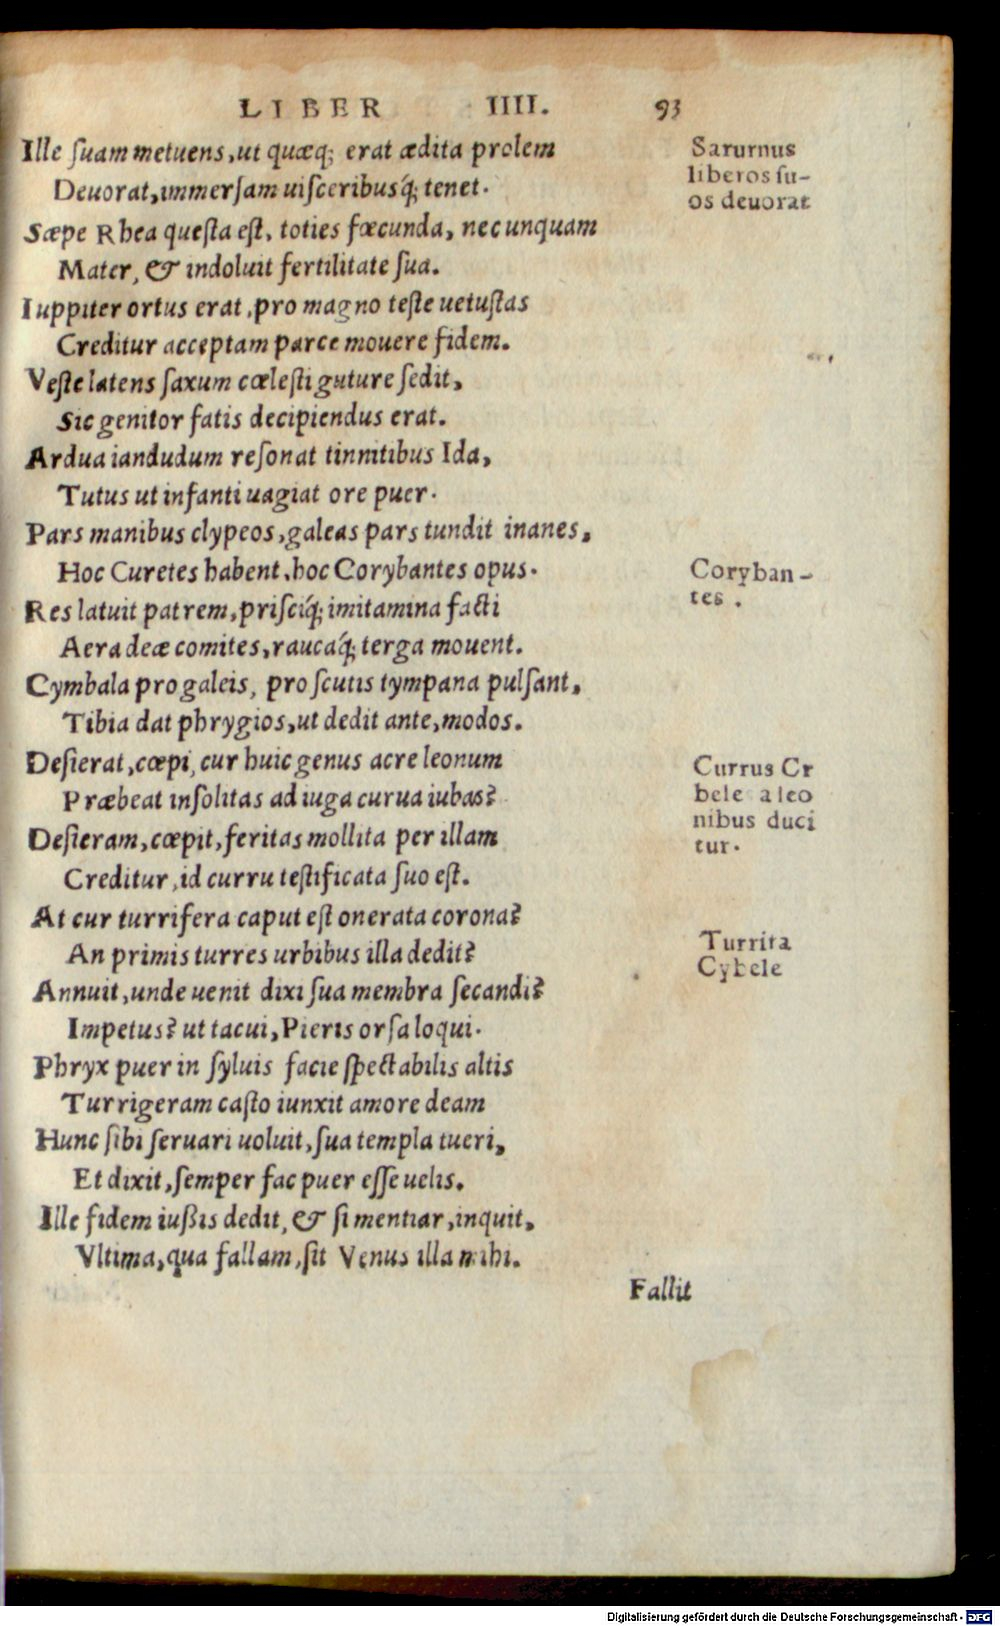 LIBER IIII. 93
Ille ſuam metuens, ut quæq; erat ædita prolem
Deuorat, immerſam uiſceribusq́; tenet.
Sæpe Rhea queſta eſt, toties fœcunda, nec unquam
Mater, & indoluit fertilitate ſua.
Iuppiter ortus erat, pro magno teſte uetuſtas
Creditur acceptam parce mouere fidem.
Veſte latens ſaxum cœleſti guture ſedit,
Sic genitor fatis decipiendus erat.
Ardua iandudum reſonat tinnitibus Ida,
Tutus ut infanti uagiat ore puer.
Pars manibus clypeos, galeas pars tundit inanes,
Hoc Curetes habent, hoc Corybantes opus.
Res latuit patrem, priſciq́; imitamina facti
Aera deæ comites, raucaq́; terga mouent.
Cymbala pro galeis, pro scutis tympana pulſant,
Tibia dat phrygios, ut dedit ante, modos.
Deſierat, cœpi, cur huic genus acre leonum
Præbeat inſolitas ad iuga curua iubas?
Deſieram, cœpit, feritas mollita per illam
Creditur, id curru teſtificata ſuo eſt.
At cur turrifera caput eſt onerata corona?
An primis turres urbibus illa dedit?
Annuit, unde uenit dixi ſua membra ſecandi?
Impetus? ut tacui, Pieris orſa loqui.
Phryx puer in ſyluis facie ſpectabilis altis
Turrigeram caſto iunxit amore deam
Hunc ſibi ſeruari uoluit, ſua templa tueri,
Et dixit, ſemper fac puer eſſe uelis.
Ille fidem iuſsis dedit, & ſi mentiar, inquit,
Vltima, qua fallam, ſit Venus illa mihi.
Fallit
Sarurnus
liberos ſu-
os deuorat
Coryban-
tes.
Currus Cr
bele a leo
nibus duci
tur.
Turrita
Cybele
Digitalisierung gefördert durch die Deutsche Forschungsgemeinschaft - DFG